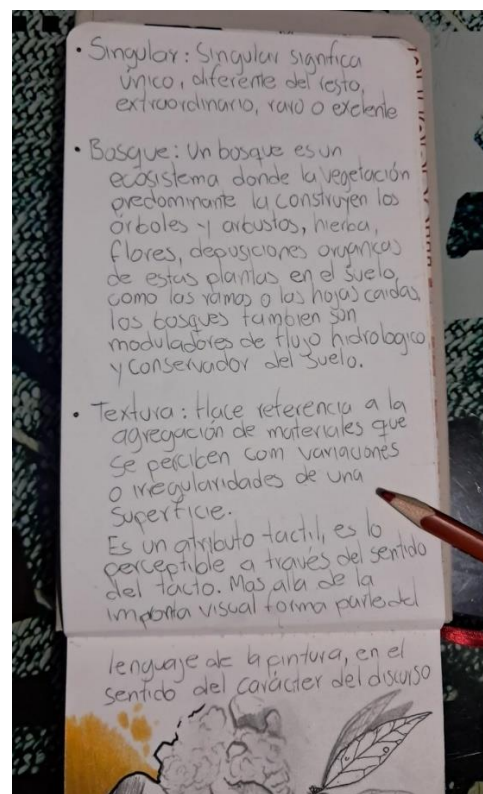 • Singular: Singular signfica
único, diferente del resto,
extraordinario, raro o exelente
• Bosque: Un bosque es un
ecosistema donde la vegetación
predominante la construyen los
árboles y arbustos, hierba,
flores, deposiciones organicas
de estas plantas en el suelo,
como las ramas o las hojas caidas,
los bosques tambien son
moduladores de flujo hidrologico
y conservador del suelo.
• Textura: Hace referencia a la
agregación de materiales que
se perciben com variaciones
o irregularidades de una
superficie.
Es un atributo tactil, es lo
perceptible a través del sentido
del tacto. Mas alla de la
imponta visual forma parte del
lenguaje de la pintura, en el
sentido del carácter del discurso